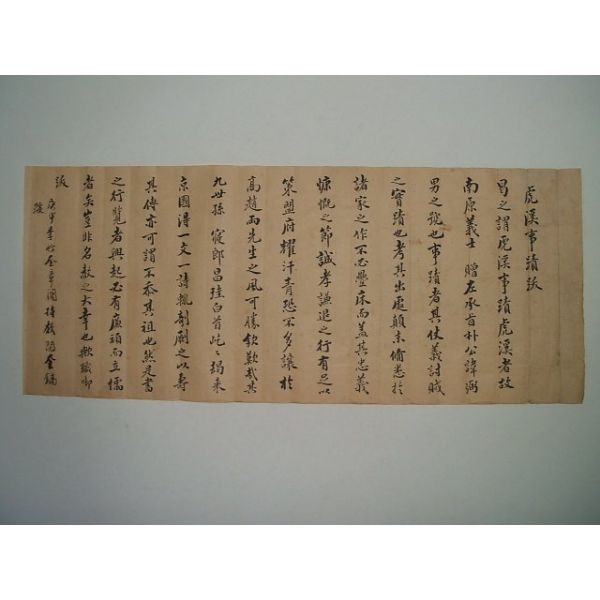 虎溪事蹟跋
曷之謂虎溪事蹟虎溪者故
南原義士 贈左承旨朴公諱
男之號也事蹟者其仗義討賊
之實蹟也考其出處顛末備悉於
諸家之作不必疊床而蓋其忠義
慷慨之節誠孝謙退之行有足以
策盟府耀汗青恐不多讓於
高趙兩先生之風可勝欽歎哉其
九世孫 寢郎昌珪白首矻矻竭來
京國得一文一詩摭剞劂之以壽
其傳亦可謂不忝其祖也然是書
之行覽者興起必有廉頑而立懦
者矣豈非名教之大幸也歟
跋
庚申季